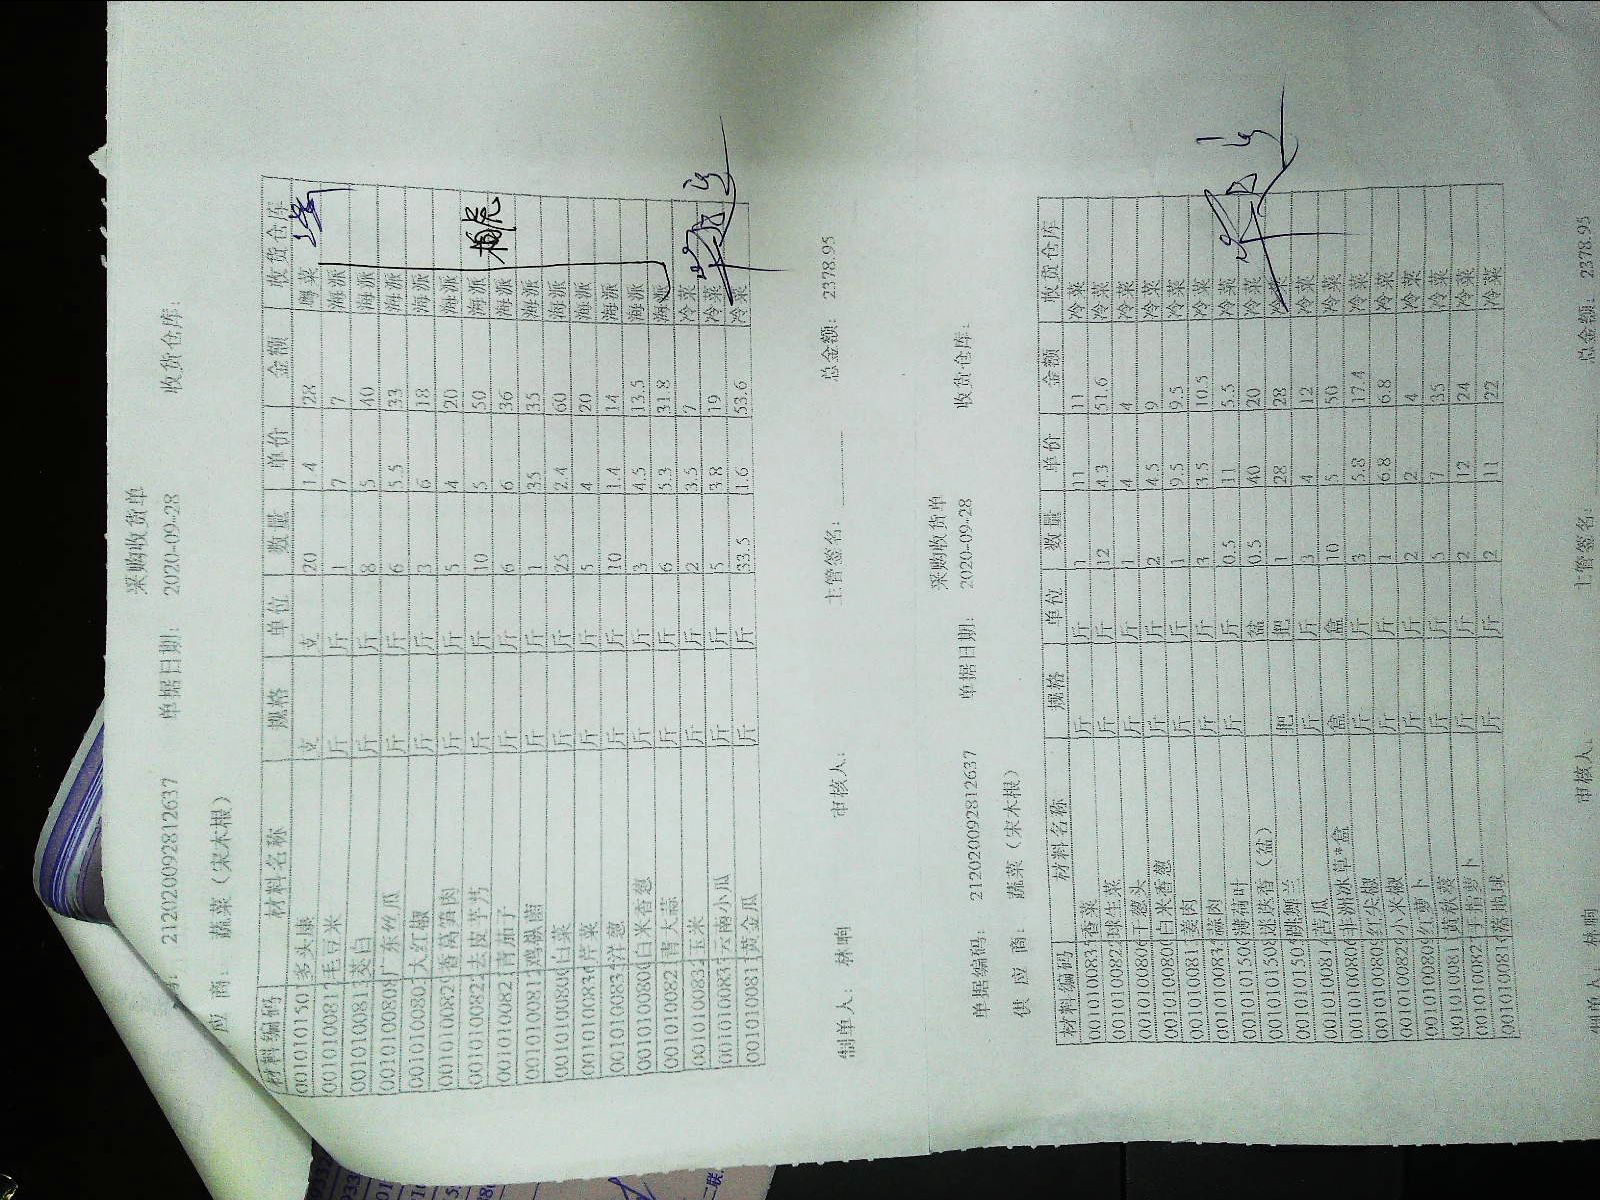 采购收货单
单据日期： 2020-09-28 收货仓库：
212020092812637
应 商： 蔬菜（宋木根）
材料编码 材料名称 规格 单位 数量 单价 金额 收货仓库
0010101501 多头康 支 支 20 1.4 28 粤菜
0010100817 毛豆米 斤 斤 1 7 7 海派
0010100813 茭白 斤 斤 8 5 40 海派
0010100808 广东丝瓜 斤 斤 6 5.5 33 海派
001010080 大红椒 斤 斤 3 6 18 海派
0010100820 香莴笋肉 斤 斤 5 4 20 海派
0010100822 去皮芋艿 斤 斤 10 5 50 海派
001010082 青茄子 斤 斤 6 6 36 海派
0010100812 鸡枞菌 斤 斤 1 35 35 海派
0010100800 白菜 斤 斤 25 2.4 60 海派
0010100836 芹菜 斤 斤 5 4 20 海派
0010100834 洋葱 斤 斤 10 1.4 14 海派
0010100800 白米香葱 斤 斤 3 4.5 13.5 海派
001010082 青大蒜 斤 斤 6 5.3 31.8 海派
0010100832 玉米 斤 斤 2 3.5 7 冷菜
0010100833 云南小瓜 斤 斤 5 3.8 19 冷菜
001010081 黄金瓜 斤 斤 33.5 1.6 53.6 冷菜
制单人： 林响 审核人： 主管签名： 总金额： 2378.95
采购收货单
单据编码： 212020092812637 单据日期： 2020-09-28 收货仓库：
供 应 商： 蔬菜（宋木根）
材料编码 材料名称 规格 单位 数量 单价 金额 收货仓库
0010100835 香菜 斤 斤 1 11 11 冷菜
0010100822 球生菜 斤 斤 12 4.3 51.6 冷菜
0010100806 干葱头 斤 斤 1 4 4 冷菜
0010100800 白米香葱 斤 斤 2 4.5 9 冷菜
001010081 姜肉 斤 斤 1 9.5 9.5 冷菜
0010100832 蒜肉 斤 斤 3 3.5 10.5 冷菜
0010101500 薄荷叶 斤 斤 0.5 11 5.5 冷菜
0010101508 迷迭香（盆） 盆 0.5 40 20 冷菜
001010150 跳舞兰 把 把 1 28 28 冷菜
0010100814 苦瓜 斤 3 4 12 冷菜
0010100806 非洲冰草*盒 盒 盒 10 5 50 冷菜
0010100805 红尖椒 斤 斤 3 5.8 17.4 冷菜
0010100829 小米椒 斤 斤 1 6.8 6.8 冷菜
0010100809 红萝卜 斤 斤 2 2 4 冷菜
001010081 黄秋葵 斤 斤 5 7 35 冷菜
001010082 手指萝卜 斤 斤 2 12 24 冷菜
001010081 斤 斤 2 11 22 冷菜
制单人： 林响 审核人： 主管签名： 总金额： 2378.95